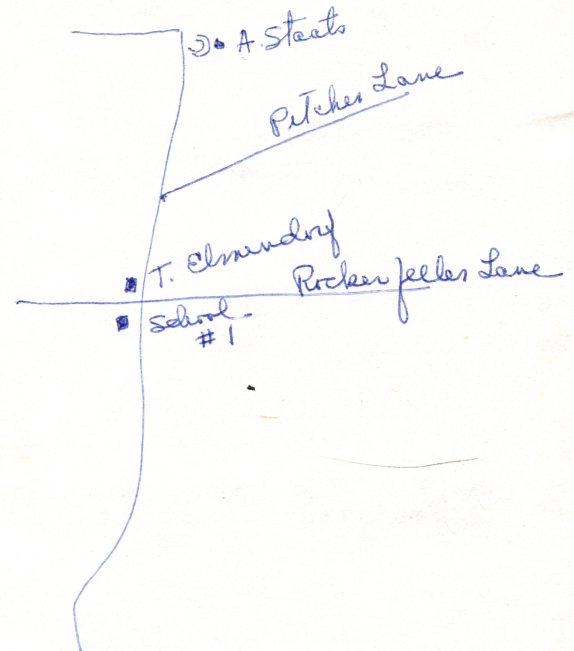 A. Staats
Pitcher Lane
T. Elmendorf
Rockerfeller Lane
School
#1